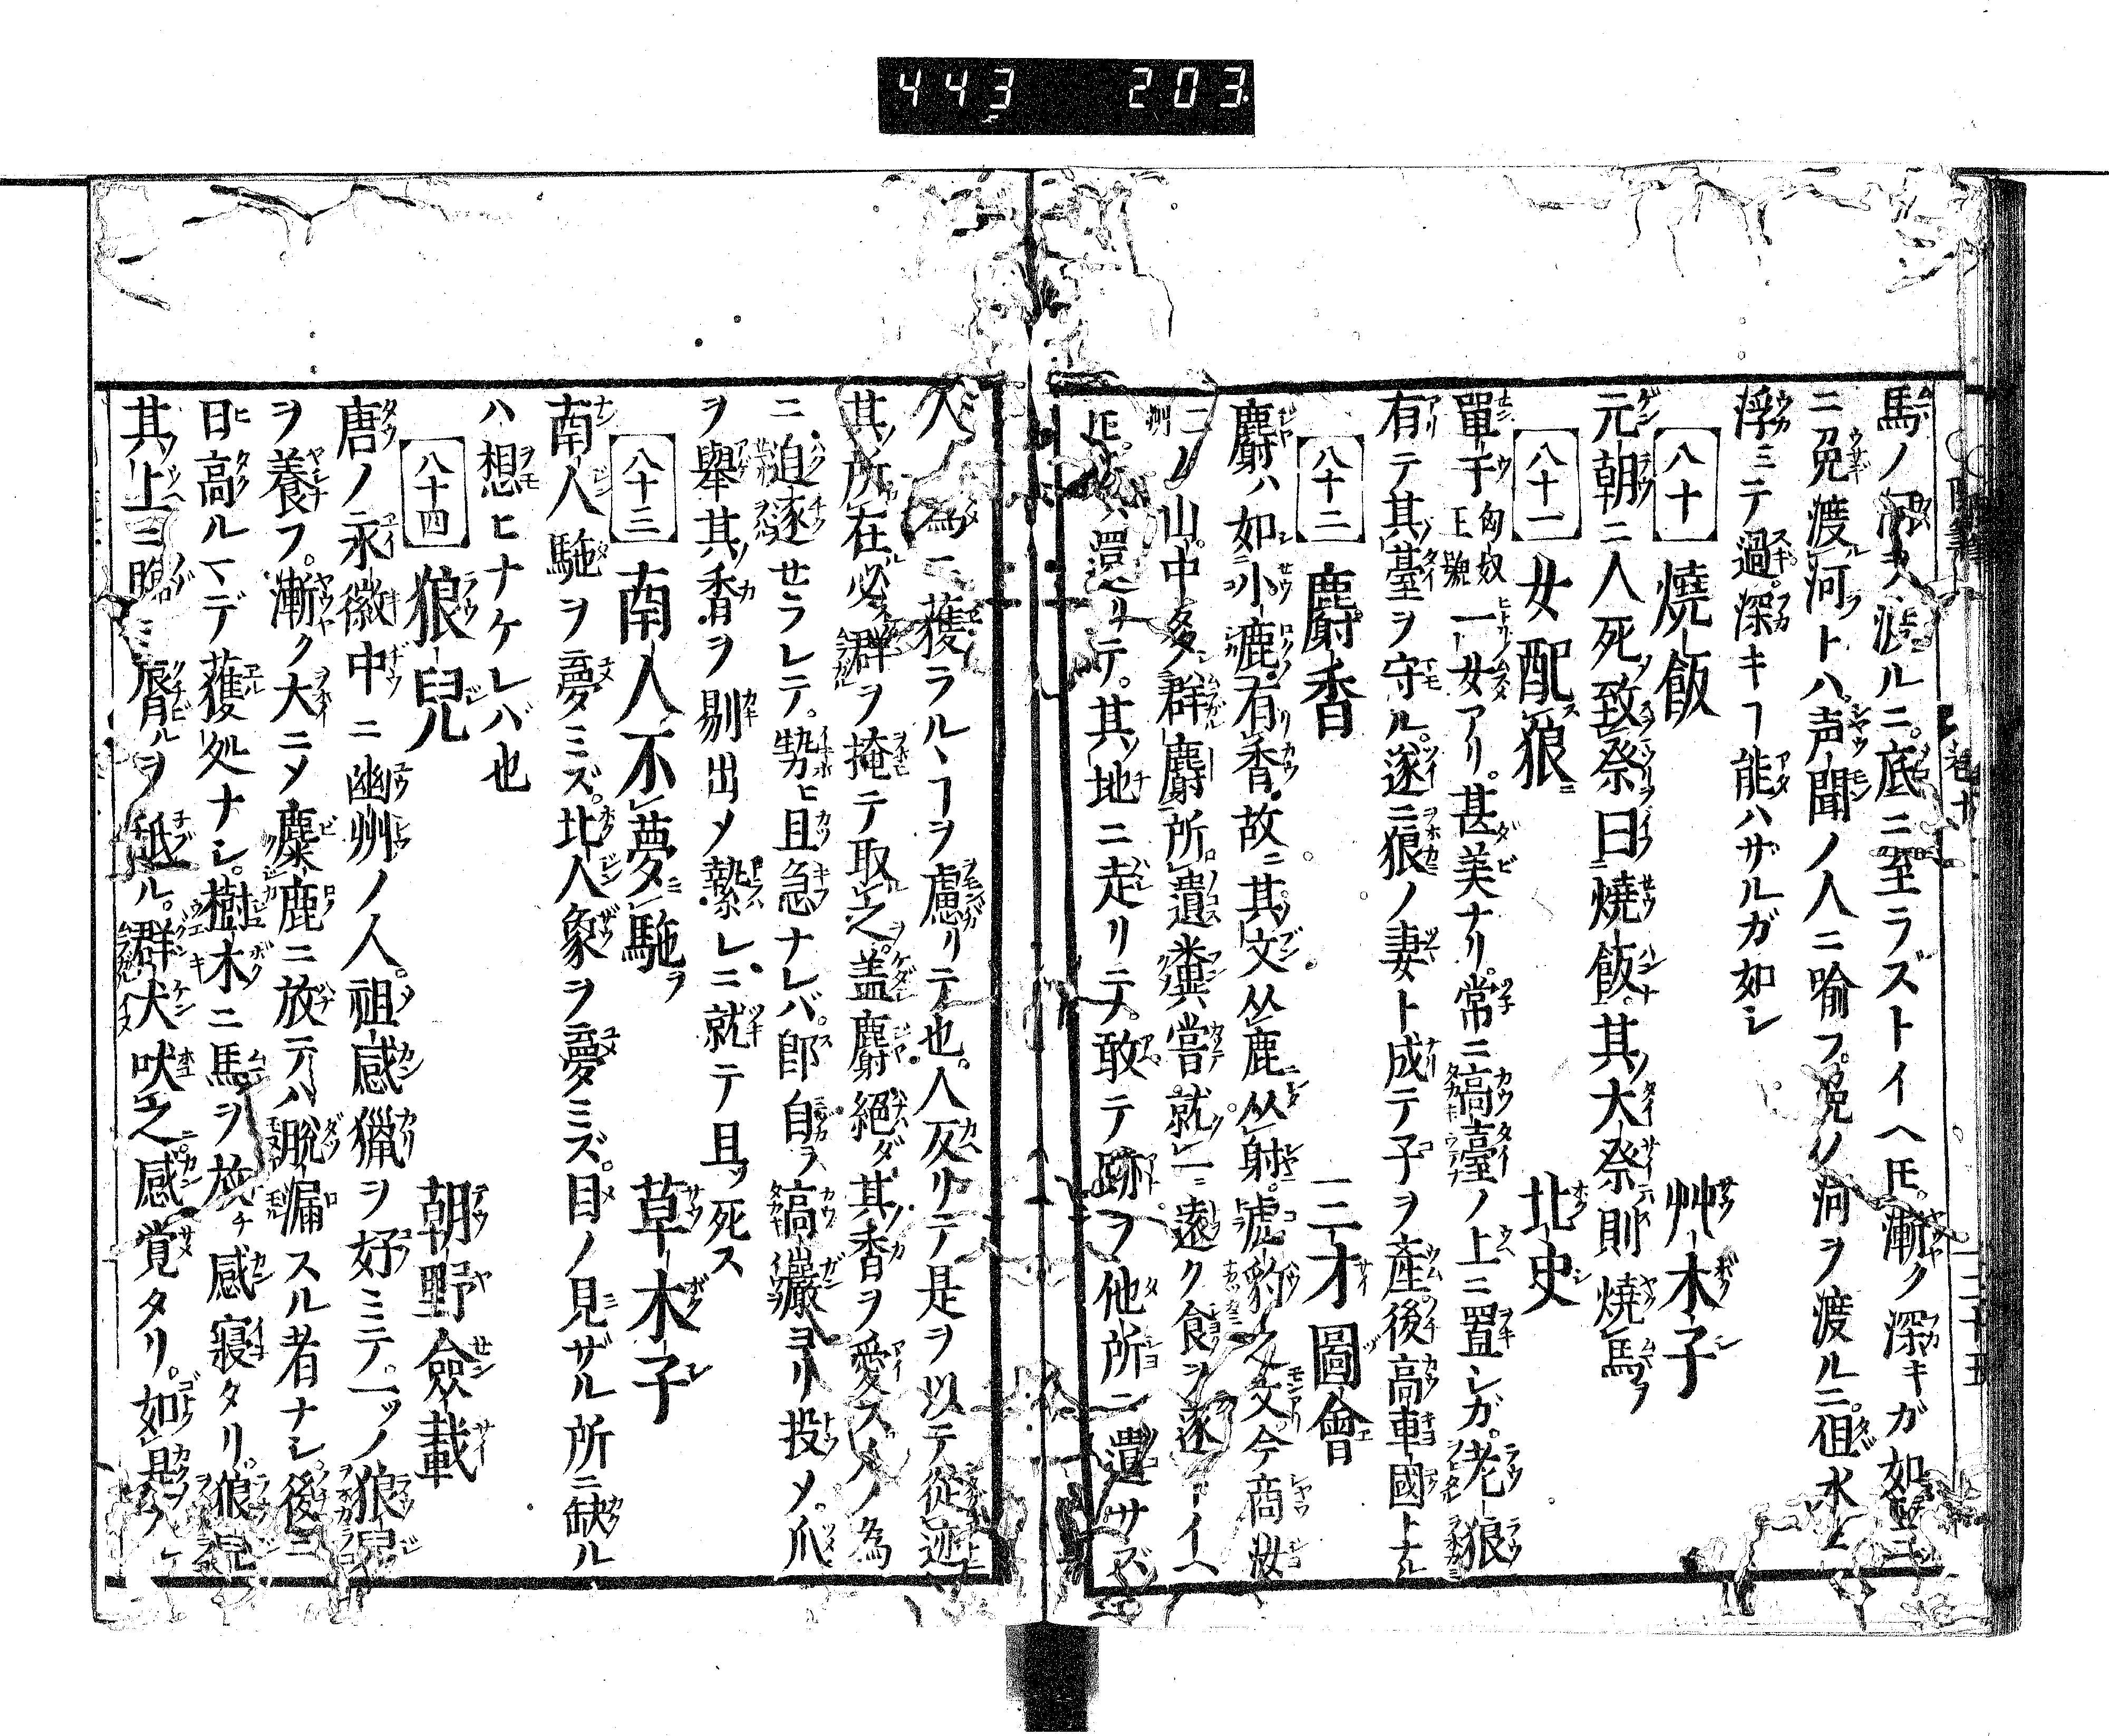 443 203
馬ノ河ヲ渡ルニ。底ニ至ラズトイヘ𪜈。漸ク深キガ如
ニ兔渡河トハ。声聞ノ人ニ喩フ。兔ノ河ヲ渡ルニ。徂水ヒ
浮ミテ過。深キヿ能ハザルガ如シ
八十 燒飯 艸木子
元朝ニ人死致祭曰燒飯。其大祭則燒馬ヲ
八十一 女配狼ニ 北史
單于匈奴王號一女アリ。甚美ナリ。常ニ高臺ノ上ニ置シガ。老狼
有テ其臺ヲ守ル。遂ニ狼ノ妻ト成テ子ヲ産。後高車國トナル
八十二 麝香 三才圖會
麝ハ如小鹿有香。故ニ其文从鹿从射。虎豹之文。今商汝
州ノ山中多群麝所遺糞。嘗就一遠ク食ヲ逐トイヘ
𪜈。還リテ。其ノ地ニ走リテ。敢テ跡ヲ他所ニ遺サズ
人ノ為ニ獲ラルヽヿヲ慮リテ也。人反リテ是ヲ以テ從迹
其ノ所在必群ヲ掩テ取之。盖麝絕ダ其香ヲ愛ス人ノ為
ニ迫逐セラレテ。勢ヒ且急ナレバ。卽自ラ高巖ヨリ投メ。爪
ヲ舉其ノ香ヲ剔出メ縶レニ就テ且ツ死ス
八十三 南人不夢駞ヲ 草木子
南人駞ヲ夢ミズ。北人象ヲ夢ミズ。目ノ見ザル所ニ缺ル
ハ想ヒナケレバ也
八十四 狼兒 朝野僉載
唐ノ永徽中ニ幽州ノ人。祖感獵ヲ好ミテ。一ツノ狼兒
ヲ養フ。漸ク大ニメ麋鹿ニ放テハ脫漏スル者ナシ。後ニ
日高ルマデ獲処ナシ。樹木ニ馬ヲ放チ感寢タリ。狼兒
其ノ上ニ臨ミ脣ルヲ舐ル。群犬吠之感覚タリ。如是